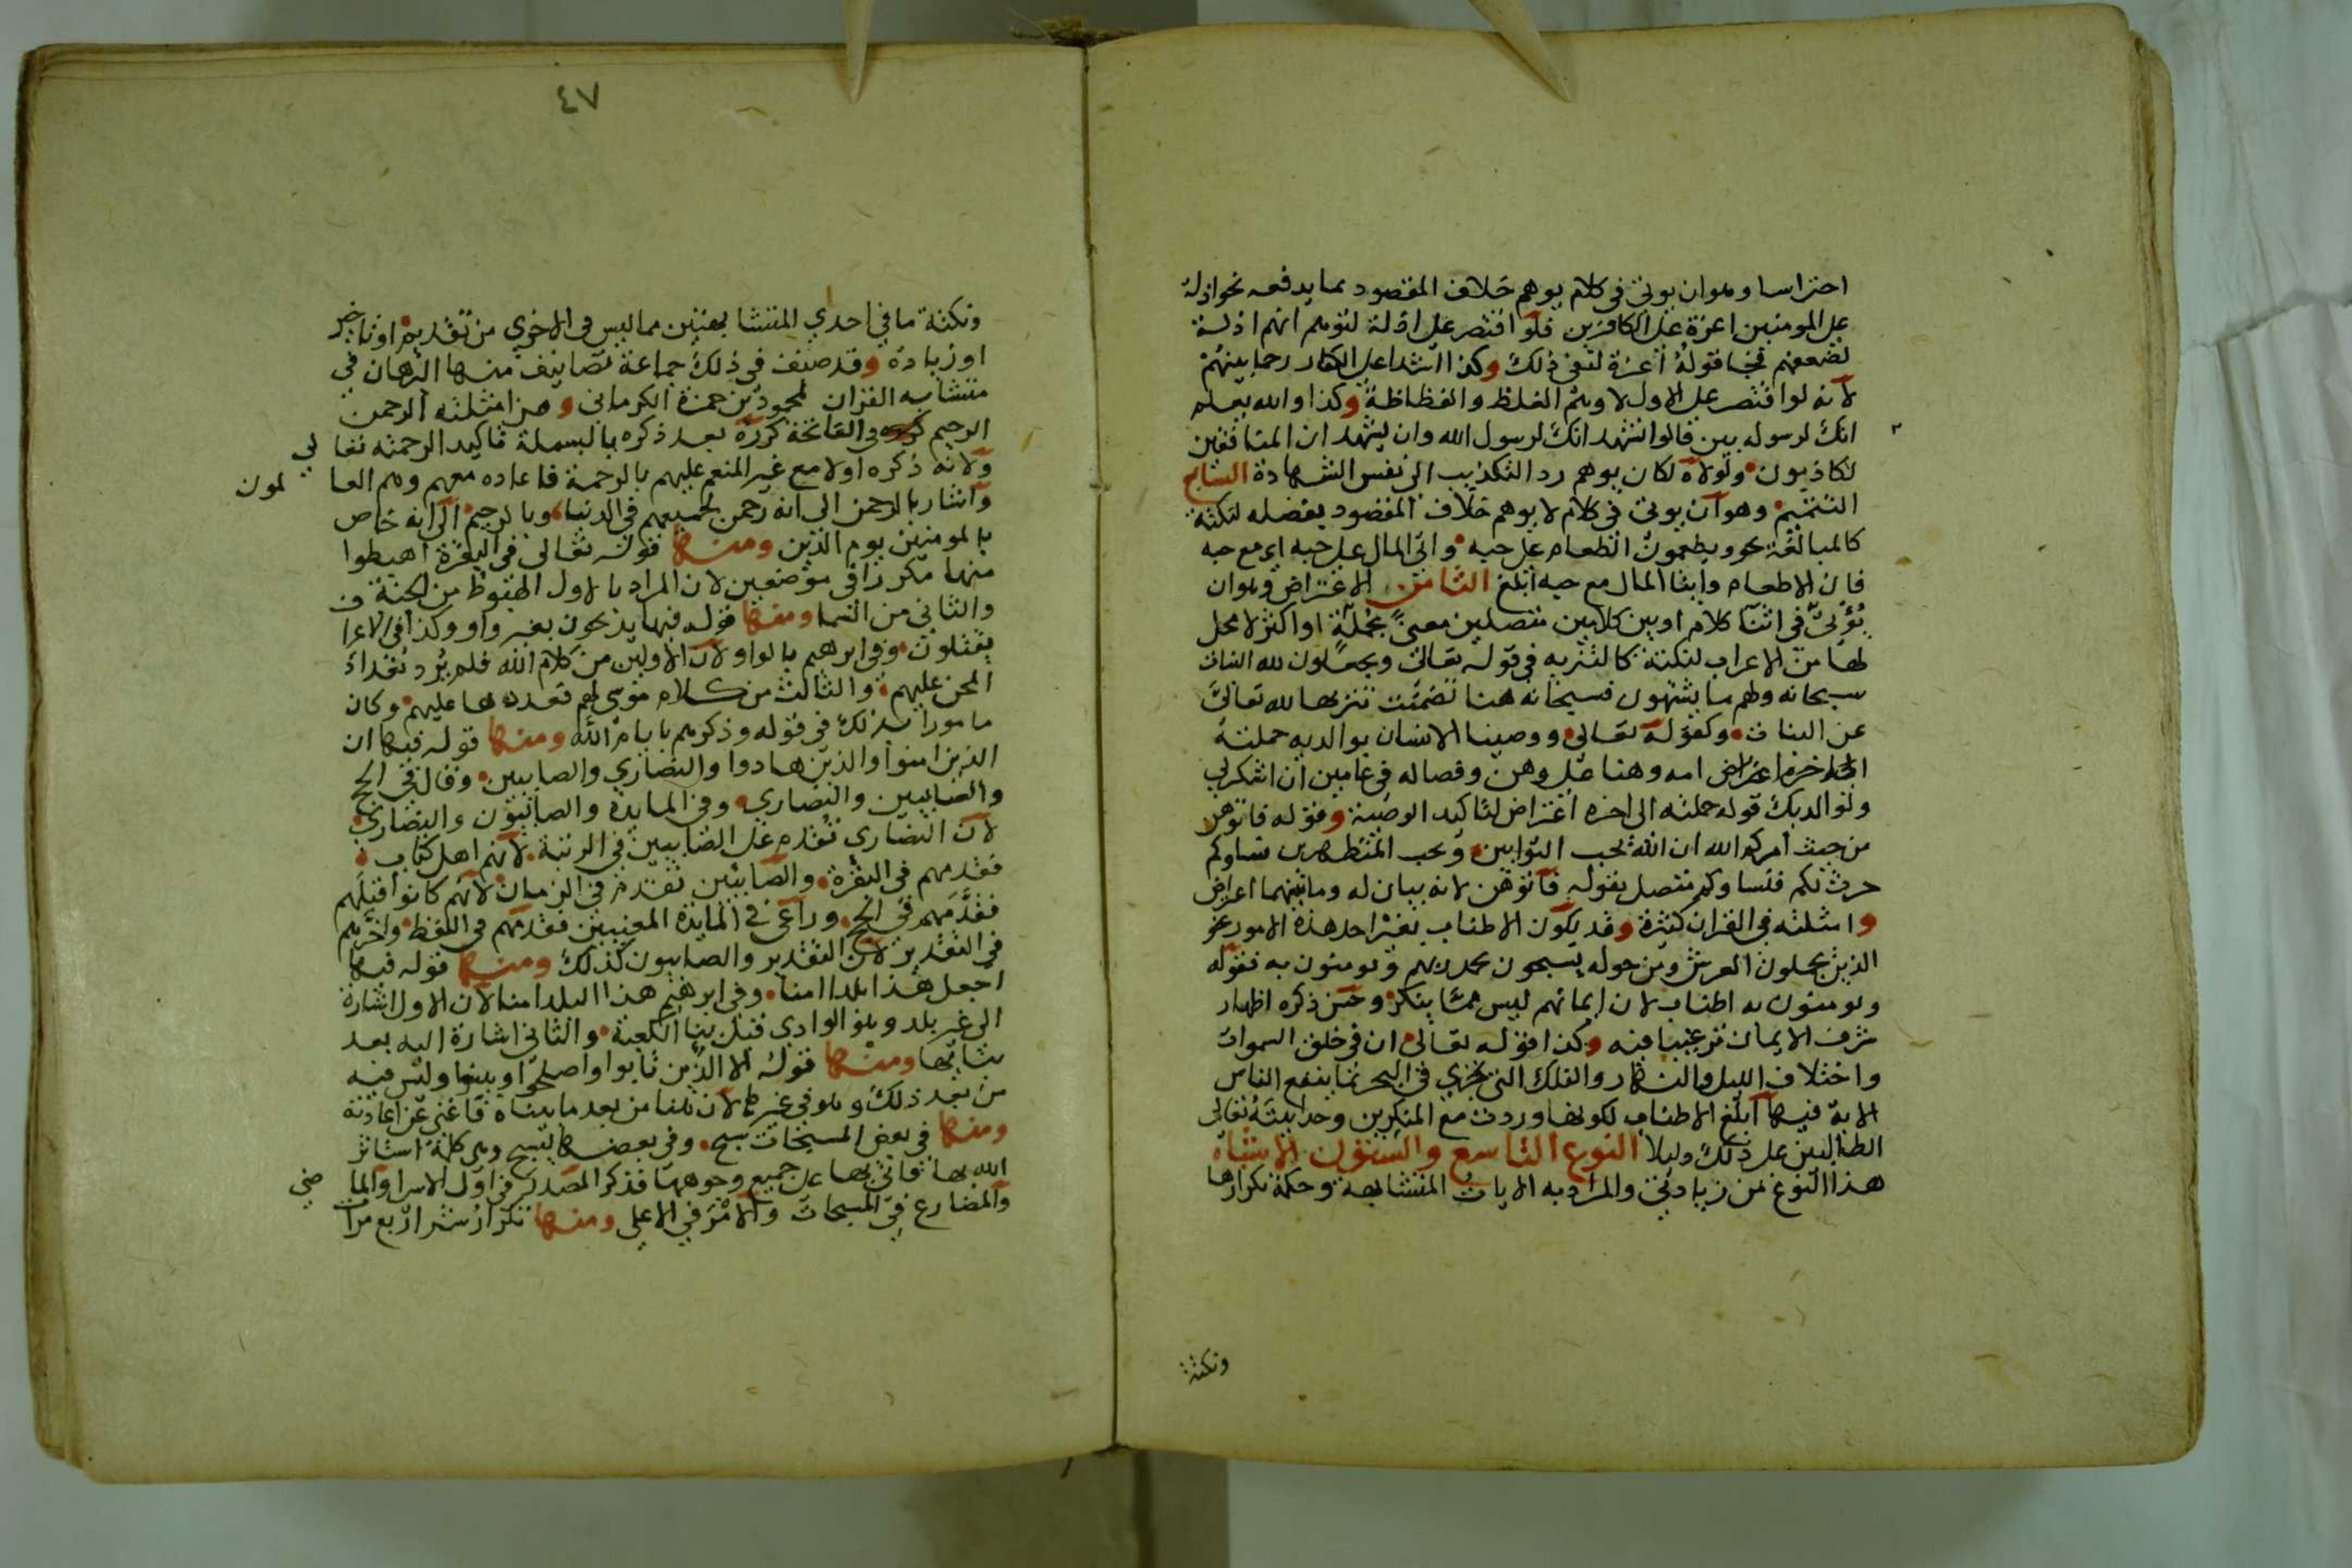 احتراسا وهوان يوتى فى كلام يوهم خلاف المقصود بما يدفعه نحو اذلة
على المومنين اعزة على الكافرين فلو اقتصر على اذلة لتوهم انهم اذلة
لضعفهم فجا قوله أعزة لنفى ذلك وكذا اشدا على الكفار رحما بينهم
لانه لو اقتصر على الاول لاوهم الغلظ والفظاظة وكذا والله يعلم
انك لرسوله بين قالوا نشهد انك لرسول الله وان يشهد ان المنافقين
لكاذبون ولولاه لكان يوهم رد التكذيب الى نفس الشهادة السابع
التتميم وهو أن يوتى فى كلام لا يوهم خلاف المقصود بفضله لنكتة
كالمبالغة نحو ويطعمون الطعام على حبه واتى المال على حبه اى مع حبه
فان الاطعام وايتا المال مع حبه أبلغ الثامن الاعتراض وهوان
يؤتى فى اثنا كلام اوبين كلامين متصلين معنىً بجملة اواكثر لا محل
لها من الاعراب لنكتة كالتنزيه فى قوله تعالى ويجعلون لله البنات
سبحانه ولهم ما يشتهون فسبحانه هنا تضمنت تنزيها لله تعالى
عن البنات وكقوله تعالى ووصينا الانسان بوالديه حملته
امه وهنا على وهن وفصاله فى عامين أن اشكر لي
ولوالديك قوله حملته الى اخره اعتراض لتاكيد الوصية وقوله فاتوهن
من حيث امركم الله ان الله يحب التوابين ويحب المتطهرين نساوكم
حرث لكم فنساوكم متصل بقوله فأتوهن لانه بيان له وما بينهما اعتراض
وامثلته فى القران كثيرة وقد يكون الاطناب بغير احد هذه الامور نحو
الذين يحملون العرش ومن حوله يسبحون بحمد ربهم ويومنون به فقوله
ويومنون به اطناب لان ايمانهم ليس مما ينكر وحسن ذكره اظهار
شرف الايمان ترغيبا فيه وكذا قوله تعالى ان فى خلق السموات
واختلاف الليل والنهار والفلك التى تجرى فى البحر بما ينفع الناس
الاية فيها أبلغ الاطناب لكونها وردت مع المنكرين وحدانيته تعالى
الطالبين على ذلك دليلا النوع التاسع والستون الاشباه
هذا النوع من زيادتى والمراد به الايات المتشابهة وحكمة تكرارها
ونكتة
٤٧
ونكتة ما في احدي المتشابهتين مما ليس فى الاخرى من تقديم اوتاخير
اوزيادة وقد صنف فى ذلك جماعة تصانيف منها البرهان في
متشابه القران لمحمود بن حمزة الكرماني ومن امثلته الرحمن
الرحيم فى الفاتحة كرره بعد ذكره بالبسملة تاكيد الرحمته تعالي
ولانه ذكره اولا مع غير المنعم عليهم بالرحمة فاعاده معهم وهم العالمون
وآشار بالرحمن الى انه رحمن لجميعهم في الدنيا وبالرحيم الى انه خاص
بالمومنين يوم الدين ومنها قوله تعالى فى البقرة اهبطوا
منها مكررا فى موضعين لان المراد بالاول الهبوط من الجنة
والثاني من السما ومنها قوله فيها يذبحون بغير واو وكذا فى الاعراف
يقتلون وفى ابرهيم بالواو لان الاولين من كلام الله فلم يرد تعداد
المحن عليهم والثالث من كلام موسى لهم فعددها عليهم وكان
مامورا بذلك فى قوله وذكرهم بايام الله ومنها قوله فيها ان
الذين امنوا والذين هادوا والنصارى والصابيين وقال فى الحج
والصابيين والنصاري وفى المايدة والصابيون والنصارى
لان النصارى تقدم على الصابيين فى الرتبة لانهم اهل كتاب
فقدمهم فى البقرة والصابئين تقدم فى الزمان لانهم كانوا قبلهم
فقدمهم فى الحج وراعى فى المايدة المعنيين فقدمهم فى اللفظ واخرهم
فى التقدير لان التقدير والصابيون كذلك ومنها قوله فيها
اجعل هذا بلدا امنا وفى ابرهيم هذا البلد امنا لان الاول اشارة
الى غير بلد وهو الوادي قبل بنا الكعبة والثانى اشارة اليه بعد
بنائها ومنها قوله الا الذين تابوا واصلحوا وبينوا وليس فيه
من بعد ذلك وهو في غيرها لان هنا من بعد ما بيناه فاغنى عن اعادته
ومنها في بعض المسبحات سبح وفى بعضها يسبح وهى كلمة استاثر
الله بها فاتى بها على جميع وجوهها فذكر المصدر في اول الاسرا والماضي
والمضارع في المسبحات والامر في الاعلى ومنها تكرار اربع مرات